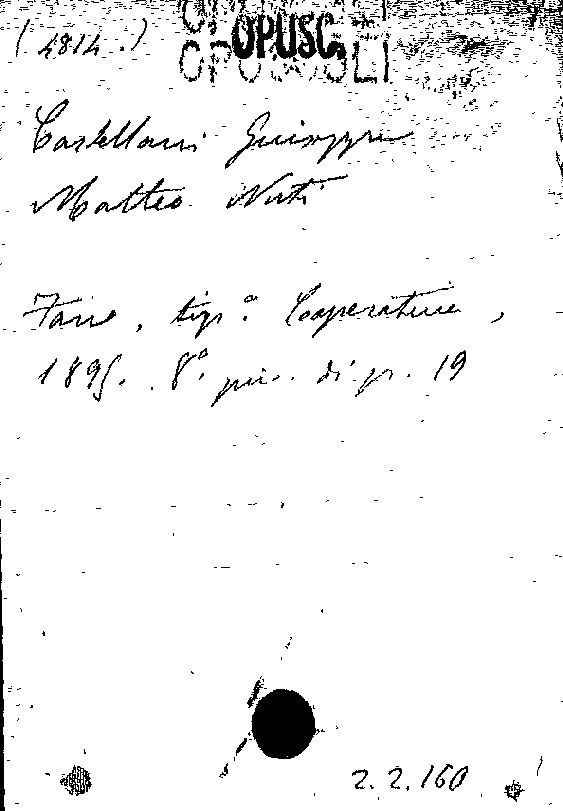 (4814.) OPUSC.
OPUSCOLI
Castellani Giuseppe
Matteo Nuti
Fano, tip.ª Cooperativa,
1895. 8º. pic. di p. 19
2.2.160